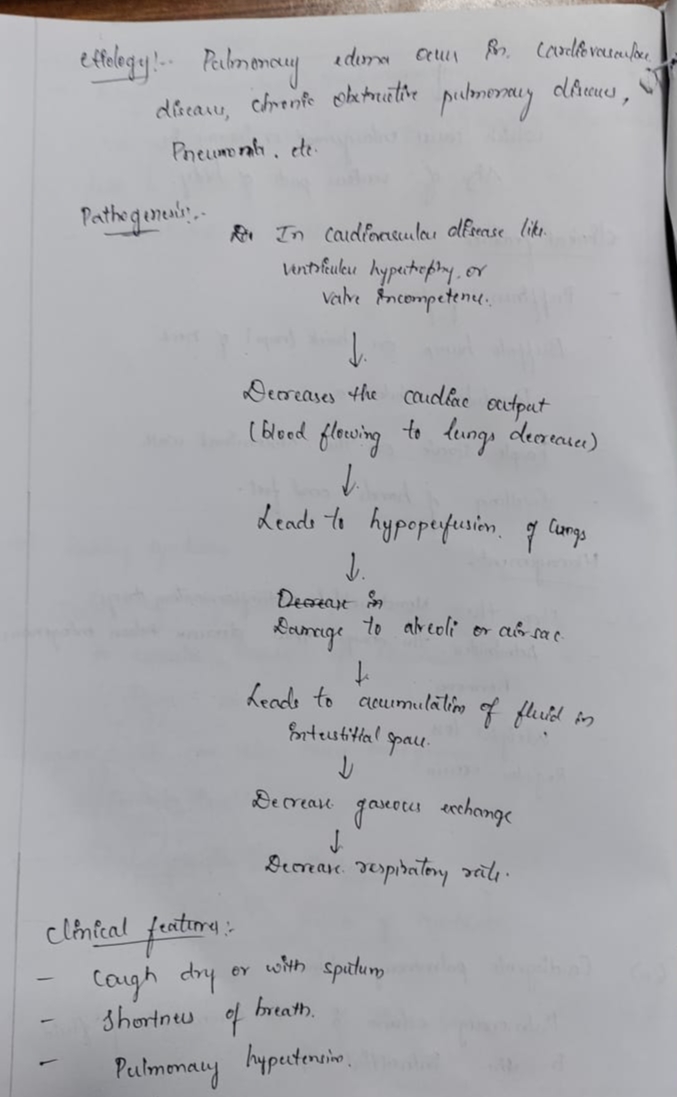 Etiology:- Pulmonary edema occur in cardiovascular
disease, chronic obstructive pulmonary diseases,
Pneumonia, etc.
Pathogenesis:-
In cardiovascular disease like
ventricular hypertrophy or
valve incompetence.
↓
Decreases the cardiac output
(blood flowing to lungs decreases)
↓
Leads to hypoperfusion of lungs
↓
Decrease in
Damage to alveoli or air sac
↓
Leads to accumulation of fluid in
interstitial space.
↓
Decrease gaseous exchange
↓
Decrease respiratory rate.
Clinical features:-
- Cough dry or with sputum
- Shortness of breath.
- Pulmonary hypertension.